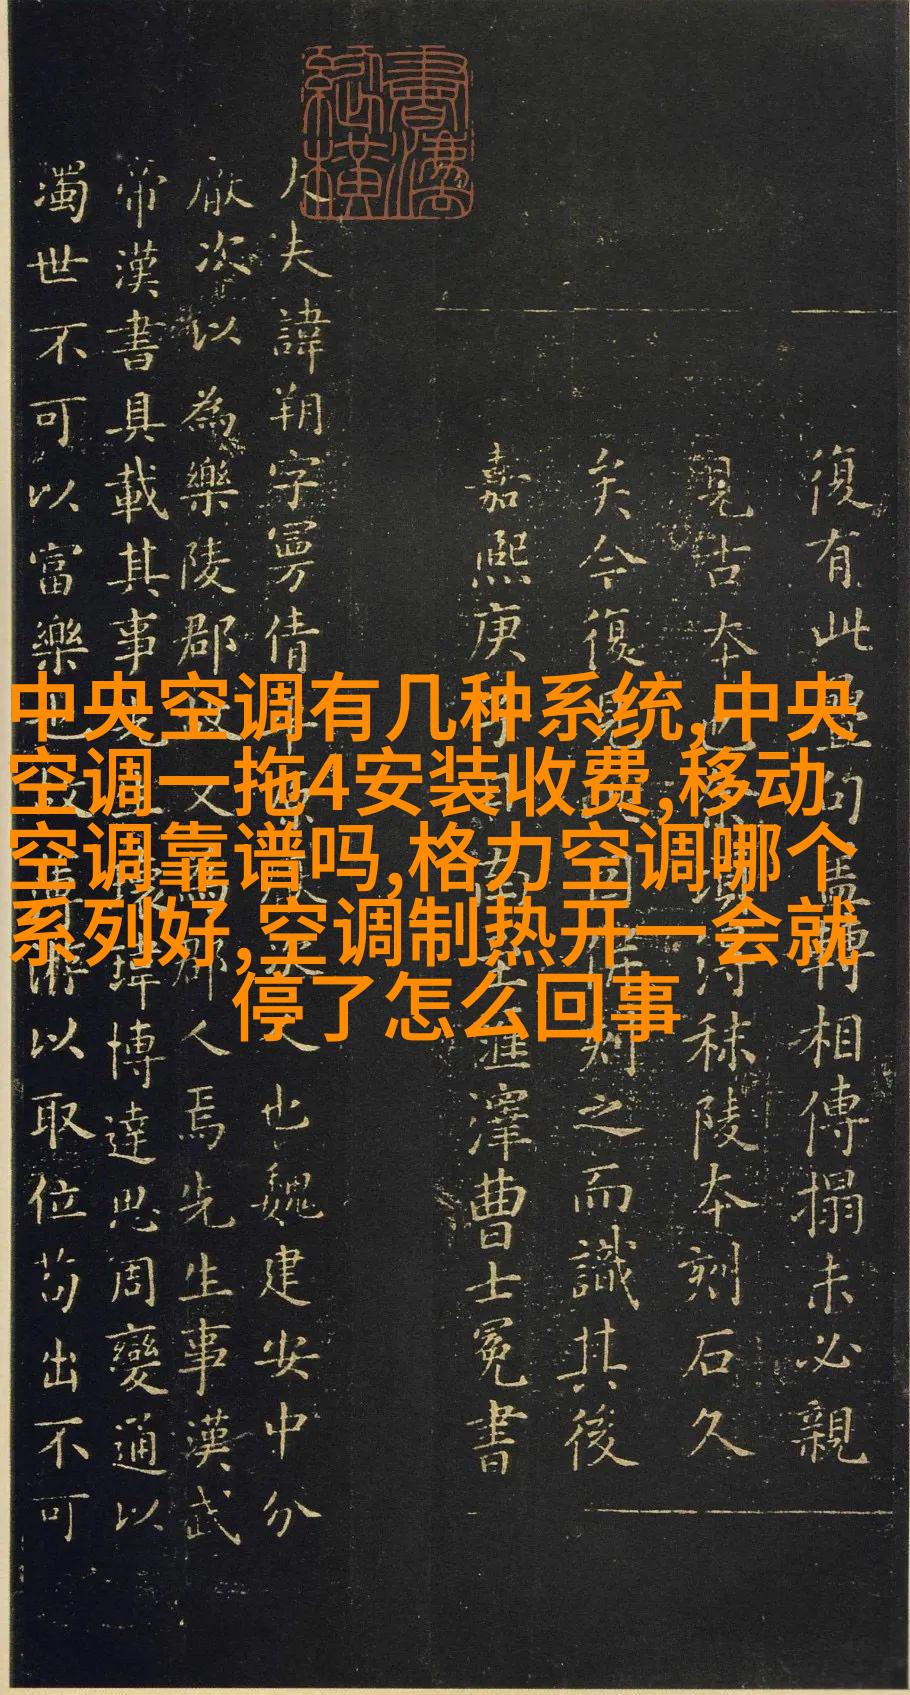 書灋縱橫
中央空调有几种系统,中央
空调一拖4安装收费,移动
空调靠谱吗,格力空调哪个
系列好,空调制热开一会就
停了怎么回事
復有此疊句盖轉相傳搨未必親
見古本也秣陵本刻石久
矣今復之而識其後
嘉熙庚匯澤曹士冕書
大夫諱朔字曼倩也魏建安中分
厥次以為樂陵郡故又為郡人焉先生事漢武
帝漢書具載其事瑋博達思周變通以
濁世不可以富樂也故以取位苟出不可